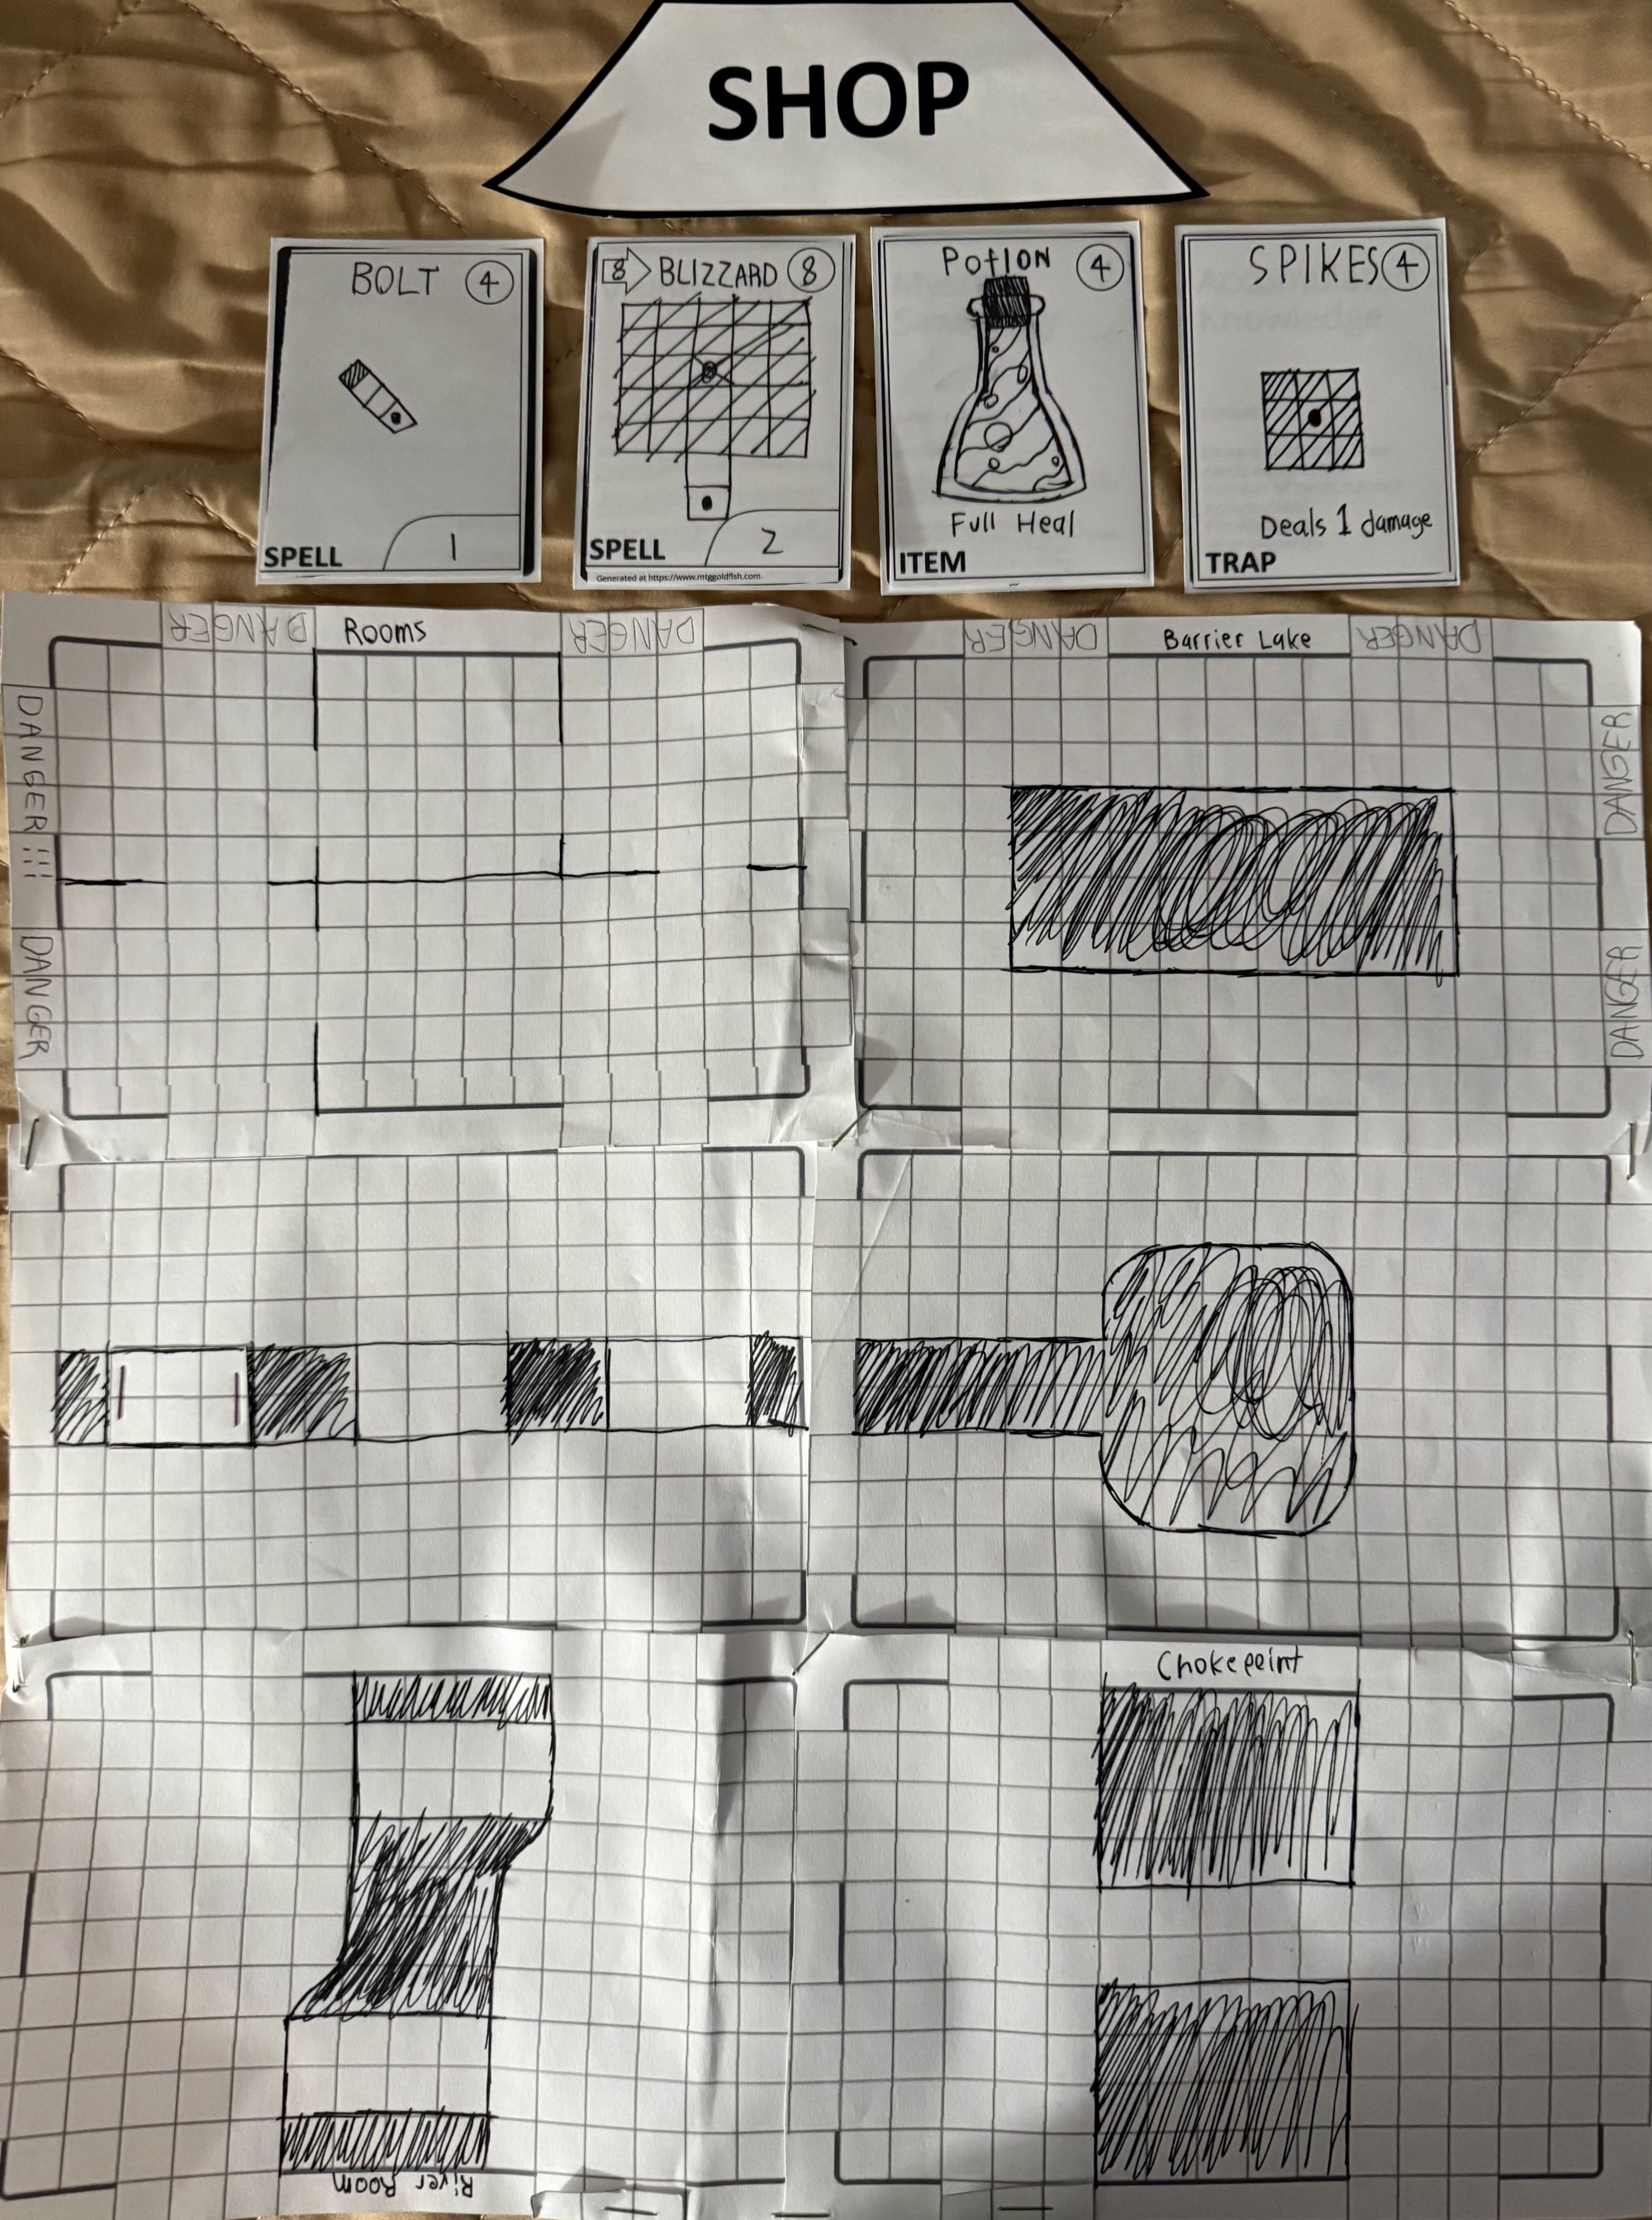 SHOP
BOLT 4
1
SPELL
8 BLIZZARD 8
2
SPELL
Generated at https://www.mtggoldfish.com
Potion 4
Full Heal
ITEM
SPIKES 4
Deals 1 damage
TRAP
DANGER
Rooms
DANGER
DANGER!!!
DANGER
DANGER
Barrier Lake
DANGER
DANGER
DANGER
Chokepoint
River Room